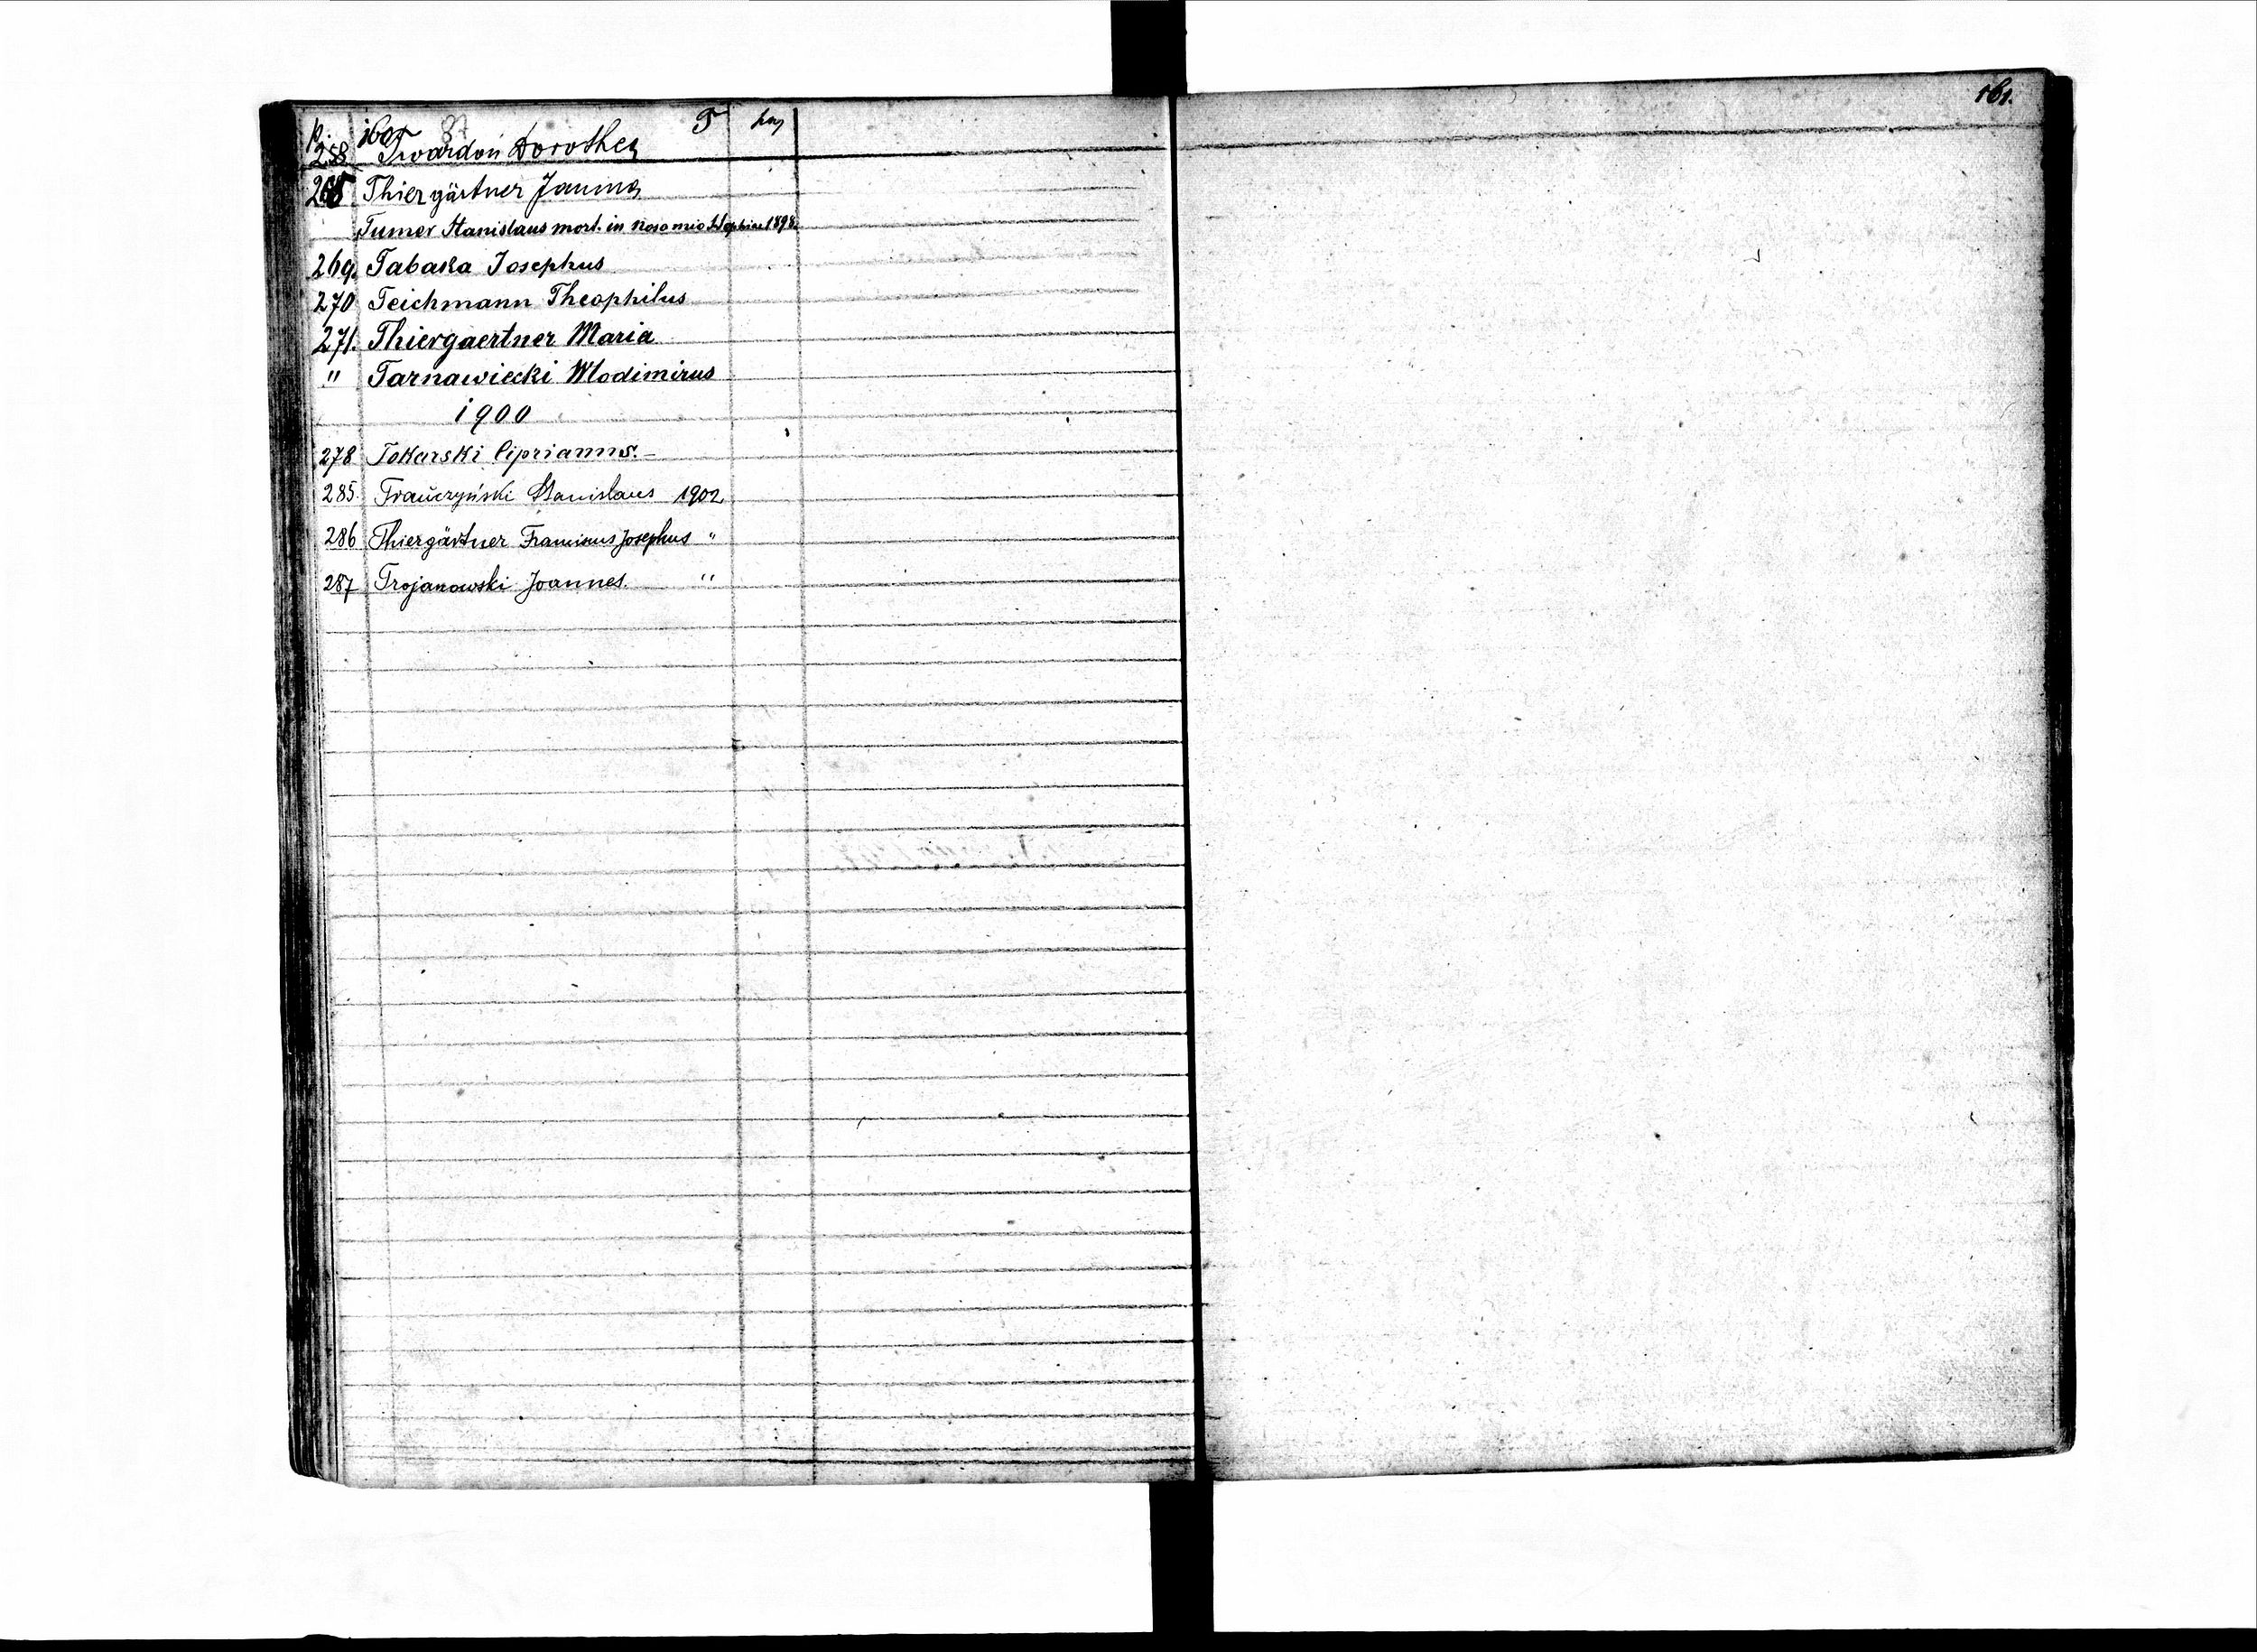 p. T pag
258 Twardoń Dorothea
265 Thiergärtner Janina
Tumer Stanislaus mort. in nosomio 1898.
269. Tabaka Josephus
270 Teichmann Theophilus
271. Thiergaertner Maria
" Tarnawiecki Wlodimirus
1900
278 Tokarski Ciprianus. –
285. Trańczyński Stanislaus 1902
286 Thiergärtner Franciscus Josephus "
287 Trojanowski Joannes. "
161.